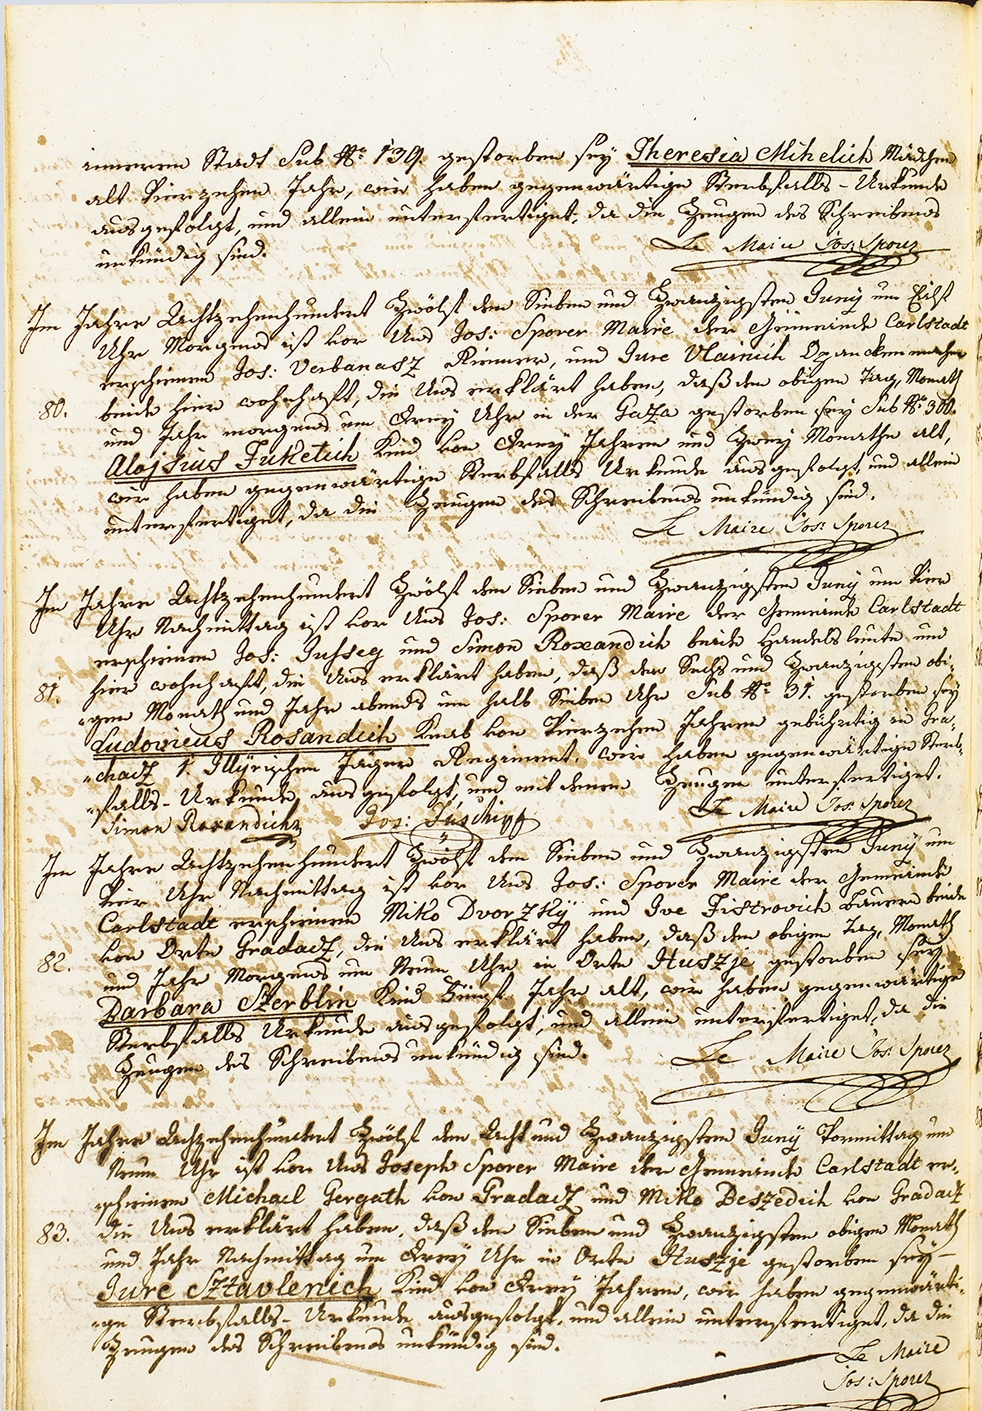 inneren Stadt Sub No 139. gestorben sey Theresia Mihelich Mädchen
alt Vierzehen Jahr, wir haben gegenwärtige Sterbfalls-Urkunde
ausgefolgt, und allein unterfertiget, da die Zeugen des Schreibens
unkündig sind.
Le Maire Jos: Sporer
Im Jahre Achtzehenhundert Zwölf den Sieben und Zwanzigsten Juny um Eilf
Uhr Morgens ist vor Uns Jos: Sporer Maire der Gemeinde Carlstadt
erschienen Jos: Verbanasz Riemer, und Jure Vlainich Opanckenmacher
beide hier wohnhaft, die Uns erklärt haben, daß den obigen Tag, Monath
80.
und Jahr morgens um Drey Uhr in der Gaza gestorben sey Sub No 308.
Alojsius Juketich Kind von Drey Jahren und Zwey Monathe alt,
wir haben gegenwärtige Sterbfalls Urkunde ausgefolgt, und allein
unterfertiget, da die Zeugen des Schreibens unkündig sind.
Le Maire Jos: Sporer
Im Jahre Achtzehenhundert Zwölf den Sieben und Zwanzigsten Juny um Vier
Uhr Nachmittag ist vor Uns Jos: Sporer Maire der Gemeinde Carlstadt
erschienen Jos: Jussseg und Simon Roxandich beide Handelsleute und
hier wohnhaft, die Uns erklärt haben, daß den Sechs und Zwanzigsten obi-
81.
-gen Monath und Jahr abends um halb Sieben Uhr Sub No 31. gestorben sey
Ludovicus Rosandich Knab von Vierzehen Jahren gebührtig in Gra-
-chacz 1. Illÿrischen Jäger Regiment, wir haben gegenwärtige Sterb-
-falls-Urkunde ausgefolgt, und mit denen Zeugen unterfertiget.
Simon Roxandich Jos: Juschigg Le Maire Jos: Sporer
Im Jahre Achtzehenhundert Zwölf den Sieben und Zwanzigsten Juny um
Vier Uhr Nachmittag ist vor Uns Jos: Sporer Maire der Gemeinde
Carlstadt erschienen Miko Dvorzky und Ive Fistrovich Bauern beide
von Orte Gradacz, die Uns erklärt haben, daß den obigen Tag, Monath
82.
und Jahr Morgens um Neun Uhr in Orte Huszje gestorben sey
Barbara Szerblin Kind Fünf Jahr alt, wir haben gegenwärtige
Sterbfalls Urkunde ausgefolgt, und allein unterfertiget, da die
Zeugen des Schreibens unkündig sind.
Le Maire Jos: Sporer
Im Jahre Achzehenhundert Zwölf den Acht und Zwanzigsten Juny Vormittag um
Neun Uhr ist vor Uns Joseph Sporer Maire der Gemeinde Carlstadt er-
-schienen Michael Gergath von Gradacz und Miko Beszedich von Gradacz
83.
die Uns erklärt haben, daß den Sieben und Zwanzigsten obigen Monath
und Jahr Nachmittag um Drey Uhr in Orte Huszje gestorben sey
Jure Sztavlenich Kind von Drey Jahren, wir haben gegenwärti-
-ge Sterbfalls-Urkunde ausgefolgt, und allein unterfertiget, da die
Zeugen des Schreibens unkündig sind.
Le Maire
Jos: Sporer